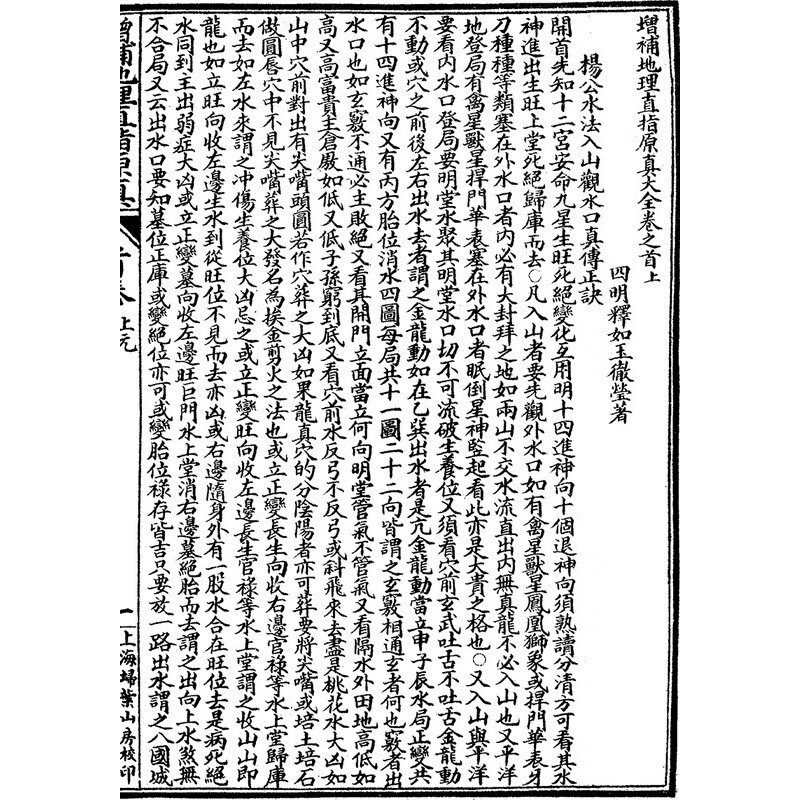 增補地理直指原真大全卷之首上
四明釋如玉徹瑩著
楊公水法入山觀水口真傳正訣
開首先知十二宮安命九星生旺死絕變化互用明十四進神向十個退神向須熟讀分清方可看其水
神進出生旺上堂死絕歸庫而去○凡入山者要先觀外水口如有禽星獸星鳳凰獅象或捍門華表牙
刀種種等類塞在外水口者內必有大封拜之地如兩山不交水流直出內無真龍不必入山也又平洋
地登局有禽星獸星捍門華表塞在外水口者眠倒星神竪起看此亦是大貴之格也○又入山與平洋
要看內水口登局要明堂水聚其明堂水口切不可流破生養位又須看穴前玄武吐舌不吐舌金龍動
不動或穴之前後左右出水去者謂之金龍動如在乙巽出水者是亢金龍動當立申子辰水局正變共
有十四進神向又有丙方胎位消水四圖每局共十一圖二十二向皆謂之玄竅相通玄者何也竅者出
水口也如玄竅不通必主敗絕又看其開門立面當立何向明堂管氣不管氣又看隔水外田地高低如
高又高富貴主倉廒如低又低子孫窮到底又看穴前水反弓不反弓或斜飛來去盡是桃花水大凶如
山中穴前對出有尖嘴頭圓若作穴葬之大凶如果龍真穴的分陰陽者亦可葬要將尖嘴或培土培石
做圓唇穴中不見尖嘴葬之大發名為挨金剪火之法也或立正變長生向收右邊官祿等水上堂歸庫
而去如左水來謂之冲傷生養位大凶忌之或立正變旺向收左邊長生官祿等水上堂謂之收山山即
龍也如立旺向收左邊生水到從旺位不見而去亦凶或右邊隨身外有一股水合在旺位去是病死絕
水同到主出弱症大凶或立正變墓向收左邊旺巨門水上堂消右邊墓絕胎而去謂之出向上水煞無
不合局又云出水口要知墓位正庫或變絕位亦可或變胎位祿存皆吉只要放一路出水謂之八國城
增補地理直指原真
首卷 上元
一
上海埽葉山房校印